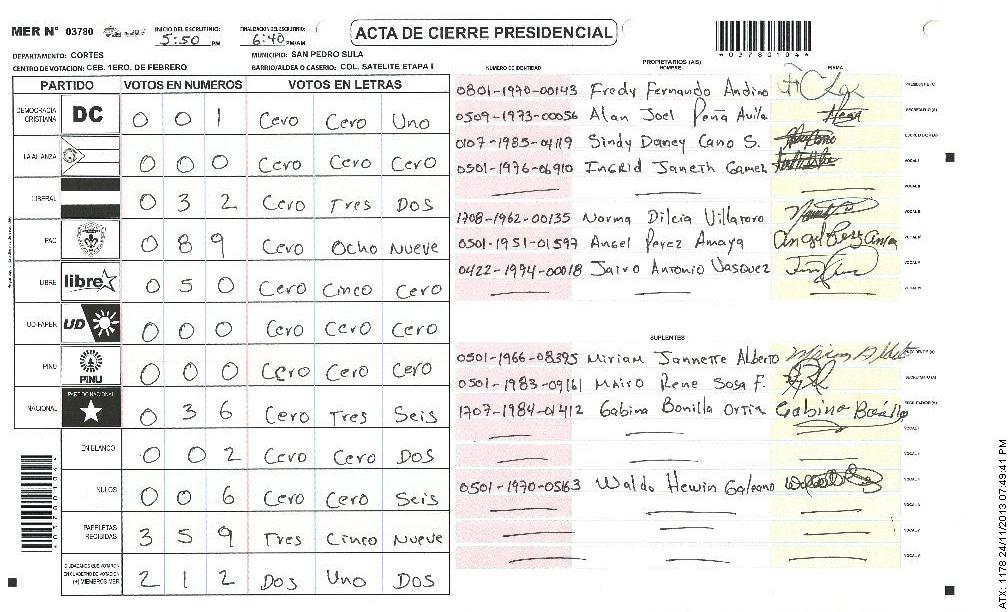 MER N° 03780 INICIO DEL ESCRUTINIO: 5:50 PM FINALIZACION DEL ESCRUTINIO: 6:40 PM/AM
ACTA DE CIERRE PRESIDENCIAL
*03780104*
DEPARTAMENTO: CORTES MUNICIPIO: SAN PEDRO SULA
CENTRO DE VOTACION: CEB. 1ERO. DE FEBRERO BARRIO/ALDEA O CASERIO: COL. SATELITE ETAPA I
PARTIDO VOTOS EN NUMEROS VOTOS EN LETRAS
DEMOCRACIA CRISTIANA DC 0 0 1 Cero Cero Uno
LA ALIANZA 0 0 0 Cero Cero Cero
LIBERAL 0 3 2 Cero Tres Dos
PAC 0 8 9 Cero Ocho Nueve
LIBRE libre 0 5 0 Cero Cinco Cero
UD-FAPER UD 0 0 0 Cero Cero Cero
PINU PINU 0 0 0 Cero Cero Cero
NACIONAL PARTIDO NACIONAL 0 3 6 Cero Tres Seis
EN BLANCO 0 0 2 Cero Cero Dos
NULOS 0 0 6 Cero Cero Seis
PAPELETAS RECIBIDAS 3 5 9 Tres Cinco Nueve
CIUDADANOS QUE VOTARON EN CUADERNO DE VOTACION (+) MIEMBROS MER 2 1 2 Dos Uno Dos
PROPIETARIOS (AS)
NUMERO DE IDENTIDAD NOMBRE FIRMA
0801-1970-00143 Fredy Fernando Andino PRESIDENTE (A)
0509-1973-00056 Alan Joel Peña Avila SECRETARIO (A)
0107-1985-04119 Sindy Daney Cano S. ESCRUTADOR (A)
0501-1976-06910 Ingrid Janeth Gamez VOCAL I
VOCAL II
1708-1962-00135 Norma Dilcia Villatoro
0501-1951-01597 Angel Perez Amaya Angel Perez Amaya
0422-1994-00018 Jairo Antonio Vasquez
SUPLENTES
0501-1966-08395 Miriam Jannette Alberto PRESIDENTE (A)
0501-1983-09161 Mairo Rene Sosa F. SECRETARIO (A)
1707-1984-01412 Gabina Bonilla Ortiz Gabina Bonilla ESCRUTADOR (A)
0501-1970-05163 Waldo Hewin Galeano
ATX: 1178 24/11/2013 07:49:41 PM